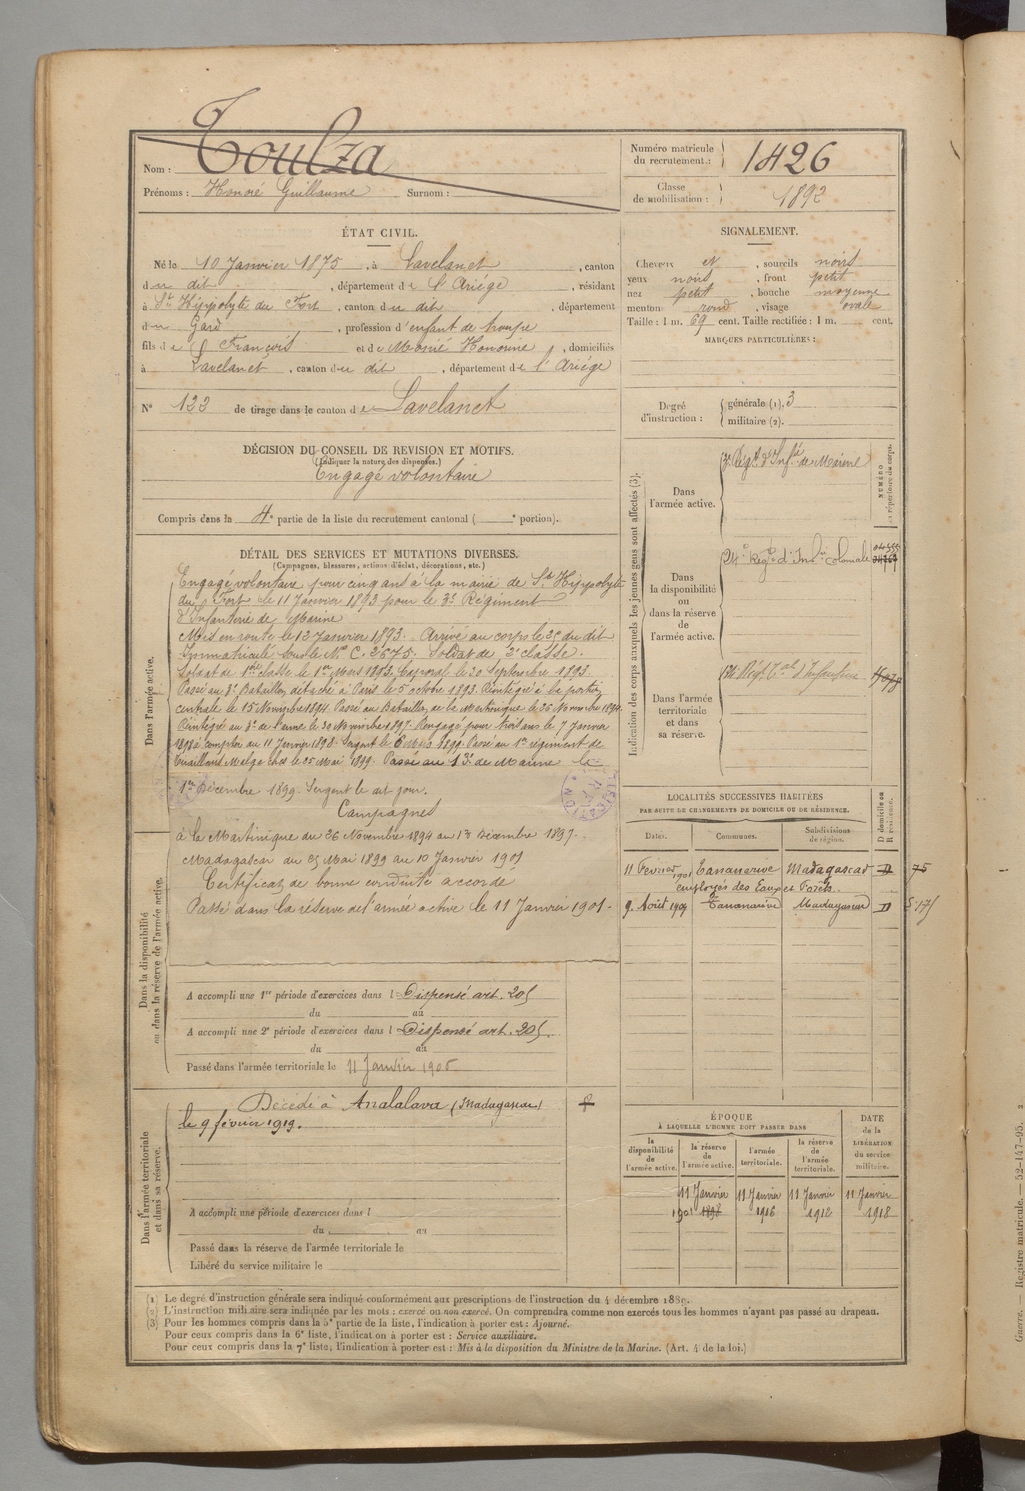 Nom : Toulza
Prénoms : Honoré Guillaume Surnom :
Numéro matricule du recrutement : 1426
Classe de mobilisation : 1892
ÉTAT CIVIL.
Né le 10 Janvier 1875, à Lavelanet, canton
du dit, département de l'Ariège, résidant
à St Hippolyte du Fort, canton du dit, département
du Gard, profession d'enfant de troupe
fils de François et de Honorine, domiciliés
à Lavelanet, canton du dit, département de l'Ariège
N° 123 de tirage dans le canton de Lavelanet
SIGNALEMENT.
Cheveux et, sourcils noirs
yeux noirs, front petit
nez petit, bouche moyenne
menton rond, visage ovale
Taille : 1 m. 69 cent. Taille rectifiée : 1 m. cent.
MARQUES PARTICULIÈRES :
Degré d'instruction : générale (1). 3
militaire (2).
DÉCISION DU CONSEIL DE REVISION ET MOTIFS.
(Indiquer la nature des dispenses.)
Engagé volontaire
Compris dans la 4e partie de la liste du recrutement cantonal ( e portion).
Indication des corps auxquels les jeunes gens sont affectés (3).
NUMÉRO au répertoire du corps.
Dans l'armée active.
3e Régt d'Inf.ie de Marine
Dans la disponibilité ou dans la réserve de l'armée active.
2e Régt d'Inf.ie Coloniale
Dans l'armée territoriale et dans sa réserve.
Régt T.al d'Infanterie
DÉTAIL DES SERVICES ET MUTATIONS DIVERSES.
(Campagnes, blessures, actions d'éclat, décorations, etc.)
Dans l'armée active.
Engagé volontaire pour cinq ans à la mairie de St Hippolyte
du Fort le 11 Janvier 1893 pour le 3e Régiment
d'Infanterie de Marine
Mis en route le 12 Janvier 1893. Arrivé au corps le 25 du dit
Immatriculé sous le N° C. 2675. Soldat de 2e classe.
Soldat de 1ère classe le 1er Mars 1893. Caporal le 20 Septembre 1893.
Passé au 3e Bataillon détaché à Paris le 5 octobre 1893. Réintégré à la portion
centrale le 15 Novembre 1894. Passé au Bataillon de la Martinique le 26 Novembre 1894.
Réintégré au 3e de l'arme le 30 Novembre 1897. Rengagé pour trois ans le 7 Janvier
1898 à compter du 11 Janvier 1898. Sergent le 6 Mars 1899. Passé au 1er régiment de
Tirailleurs Malgaches le 25 Mai 1899. Passé au 13e de Marine le
1er Décembre 1899. Sergent le dit jour.
Campagnes
à la Martinique du 26 Novembre 1894 au 13 Décembre 1897.
Madagascar du 25 Mai 1899 au 10 Janvier 1901
Certificat de bonne conduite accordé
Passé dans la réserve de l'armée active le 11 Janvier 1901.
LOCALITÉS SUCCESSIVES HABITÉES
PAR SUITE DE CHANGEMENTS DE DOMICILE OU DE RÉSIDENCE.
Dates. Communes. Subdivisions de région. D domicile ou R résidence.
11 Février 1901 Tananarive Madagascar D 75
employés des Eaux et Forêts.
9 Août 1909 Tananarive Madagascar D
Dans la disponibilité ou dans la réserve de l'armée active.
A accompli une 1re période d'exercices dans l Dispensé art. 205
du au
A accompli une 2e période d'exercices dans l Dispensé art. 205
du au
Passé dans l'armée territoriale le 11 Janvier 1906
Dans l'armée territoriale et dans sa réserve.
Décédé à Analalava (Madagascar)
le 9 février 1919.
A accompli une période d'exercices dans l
du au
Passé dans la réserve de l'armée territoriale le
Libéré du service militaire le
ÉPOQUE
À LAQUELLE L'HOMME DOIT PASSER DANS
DATE de la LIBÉRATION du service militaire.
la disponibilité de l'armée active. la réserve de l'armée active. l'armée territoriale. la réserve de l'armée territoriale.
11 Janvier 11 Janvier 11 Janvier 11 Janvier
1901 1898 1906 1912 1918
(1) Le degré d'instruction générale sera indiqué conformément aux prescriptions de l'instruction du 4 décembre 1889.
(2) L'instruction militaire sera indiquée par les mots : exercé ou non exercé. On comprendra comme non exercés tous les hommes n'ayant pas passé au drapeau.
(3) Pour les hommes compris dans la 5e partie de la liste, l'indication à porter est : Ajourné.
Pour ceux compris dans la 6e liste, l'indication à porter est : Service auxiliaire.
Pour ceux compris dans la 7e liste, l'indication à porter est : Mis à la disposition du Ministre de la Marine. (Art. 4 de la loi.)
Guerre. — Registre matricule. — 52-147-95.